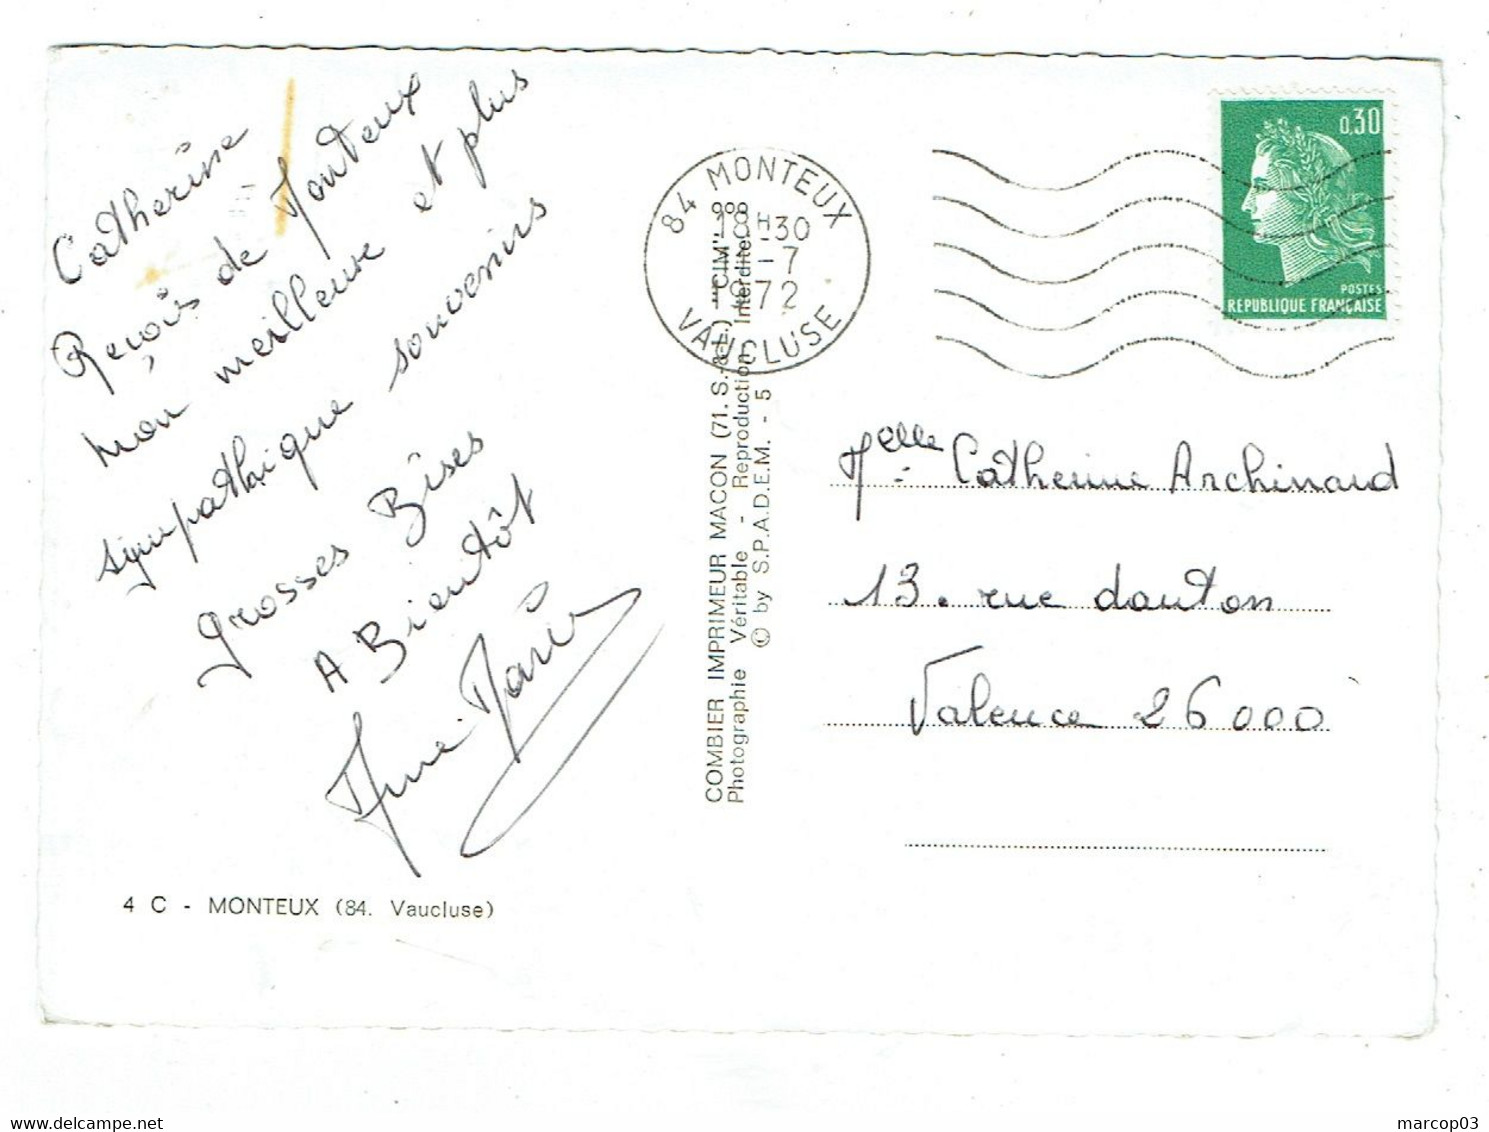 Catherine
Reçois de Monteux
mon meilleure et plus
sympathaique souvenirs
grosses Bises
A Bientôt
Anne Marie
4 C - MONTEUX (84. Vaucluse)
COMBIER IMPRIMEUR MACON (71. S.-&-L.) "CIM"
Photographie Véritable - Reproduction Interdite
© by S.P.A.D.E.M. - 5
84 MONTEUX
18H30
-7
1972
VAUCLUSE
0,30
POSTES
REPUBLIQUE FRANÇAISE
Melle Catherine Archinard
13. rue danton
Valence 26000
marcop03